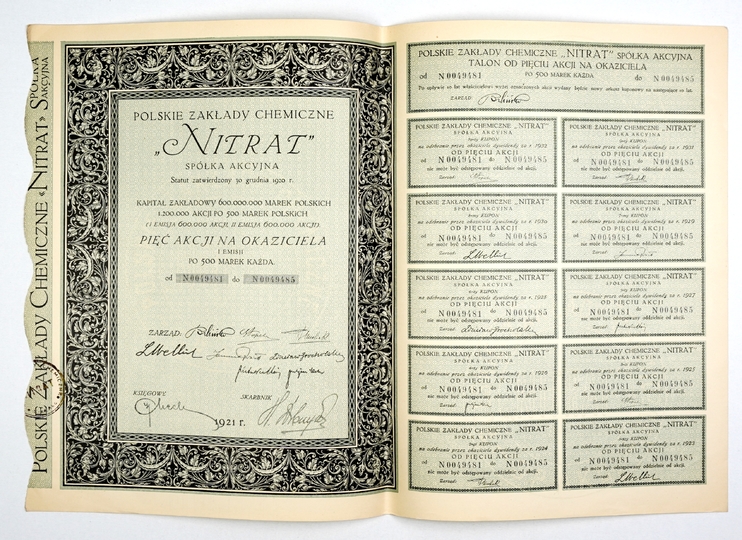 POLSKIE ZAKŁADY CHEMICZNE «NITRAT» SPÓŁKA AKCYJNA
POLSKIE ZAKŁADY CHEMICZNE
„NITRAT”
SPÓŁKA AKCYJNA
Statut zatwierdzony 30 grudnia 1920 r.
KAPITAŁ ZAKŁADOWY 600.000.000 MAREK POLSKICH
1.200.000 AKCJI PO 500 MAREK POLSKICH
(I EMISJA 600.000 AKCJI, II EMISJA 600.000 AKCJI).
PIĘĆ AKCJI NA OKAZICIELA
I EMISJI
PO 500 MAREK KAŻDA.
od N0049481 do N0049485
ZARZĄD:
KSIĘGOWY: SKARBNIK:
1921 r.
POLSKIE ZAKŁADY CHEMICZNE „NITRAT” SPÓŁKA AKCYJNA
TALON OD PIĘCIU AKCJI NA OKAZICIELA
od N0049481 PO 500 MAREK KAŻDA. do N0049485
Po upływie 10 lat właścicielowi wyżej oznaczonych akcji wydany będzie nowy arkusz kuponowy na następujące 10 lat.
ZARZĄD:
POLSKIE ZAKŁADY CHEMICZNE „NITRAT”
SPÓŁKA AKCYJNA
KUPON
na odebranie przez okaziciela dywidendy za r. 1932
OD PIĘCIU AKCJI
od N0049481 do N0049485
nie może być odstępowany oddzielnie od akcji.
Zarząd:
POLSKIE ZAKŁADY CHEMICZNE „NITRAT”
SPÓŁKA AKCYJNA
KUPON
na odebranie przez okaziciela dywidendy za r. 1931
OD PIĘCIU AKCJI
od N0049481 do N0049485
nie może być odstępowany oddzielnie od akcji.
Zarząd:
POLSKIE ZAKŁADY CHEMICZNE „NITRAT”
SPÓŁKA AKCYJNA
KUPON
na odebranie przez okaziciela dywidendy za r. 1930
OD PIĘCIU AKCJI
od N0049481 do N0049485
nie może być odstępowany oddzielnie od akcji.
Zarząd:
POLSKIE ZAKŁADY CHEMICZNE „NITRAT”
SPÓŁKA AKCYJNA
KUPON
na odebranie przez okaziciela dywidendy za r. 1929
OD PIĘCIU AKCJI
od N0049481 do N0049485
nie może być odstępowany oddzielnie od akcji.
Zarząd:
POLSKIE ZAKŁADY CHEMICZNE „NITRAT”
SPÓŁKA AKCYJNA
KUPON
na odebranie przez okaziciela dywidendy za r. 1928
OD PIĘCIU AKCJI
od N0049481 do N0049485
nie może być odstępowany oddzielnie od akcji.
Zarząd:
POLSKIE ZAKŁADY CHEMICZNE „NITRAT”
SPÓŁKA AKCYJNA
KUPON
na odebranie przez okaziciela dywidendy za r. 1927
OD PIĘCIU AKCJI
od N0049481 do N0049485
nie może być odstępowany oddzielnie od akcji.
Zarząd:
POLSKIE ZAKŁADY CHEMICZNE „NITRAT”
SPÓŁKA AKCYJNA
KUPON
na odebranie przez okaziciela dywidendy za r. 1926
OD PIĘCIU AKCJI
od N0049481 do N0049485
nie może być odstępowany oddzielnie od akcji.
Zarząd:
POLSKIE ZAKŁADY CHEMICZNE „NITRAT”
SPÓŁKA AKCYJNA
KUPON
na odebranie przez okaziciela dywidendy za r. 1925
OD PIĘCIU AKCJI
od N0049481 do N0049485
nie może być odstępowany oddzielnie od akcji.
Zarząd:
POLSKIE ZAKŁADY CHEMICZNE „NITRAT”
SPÓŁKA AKCYJNA
KUPON
na odebranie przez okaziciela dywidendy za r. 1924
OD PIĘCIU AKCJI
od N0049481 do N0049485
nie może być odstępowany oddzielnie od akcji.
Zarząd:
POLSKIE ZAKŁADY CHEMICZNE „NITRAT”
SPÓŁKA AKCYJNA
KUPON
na odebranie przez okaziciela dywidendy za r. 1923
OD PIĘCIU AKCJI
od N0049481 do N0049485
nie może być odstępowany oddzielnie od akcji.
Zarząd: